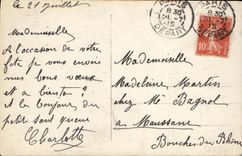 le 21 juillet
Mademoiselle
A l'occasion de votre
fête je vous envoie
mes bons vœux
et a bientôt
et le bonjour du
petit sans queue
Charlotte
PARIS
8 30
21 - 7
15
DEPART
10
Mademoiselle
Madeleine Martin
chez Mr Bagnol
a Maussane
Bouches du Rhône